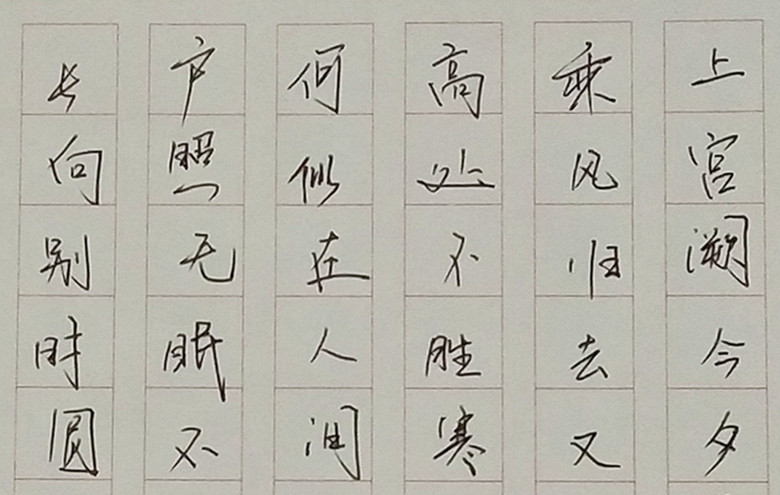 上宫阙今夕
乘风归去又
高处不胜寒
何似在人间
户照无眠不
长向别时圆